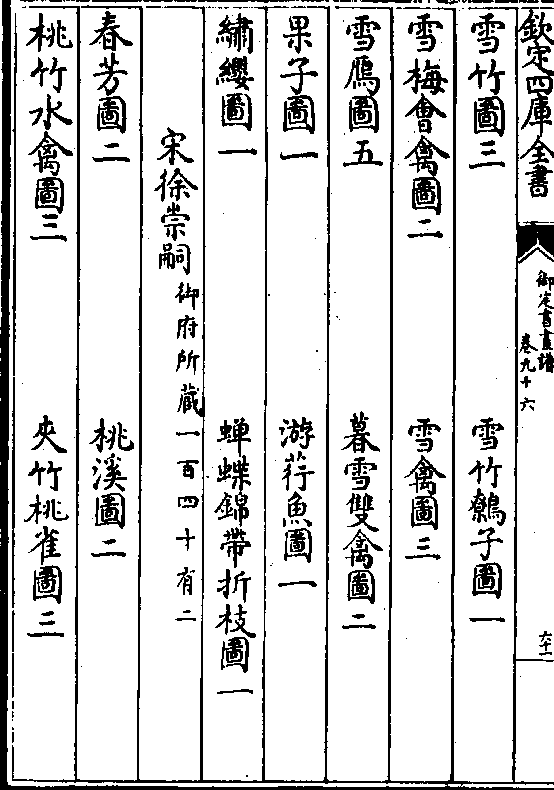 欽定四庫全書
御定書畫譜
卷九十六
六十一
雪竹圖三　雪竹鷯子圖一
雪梅會禽圖二　雪禽圖三
雪鴈圖五　暮雪雙禽圖二
果子圖一　游荇魚圖一
繡纓圖一　蟬蝶錦帶折枝圖一
宋徐崇嗣御府所藏一百四十有二
春芳圖二　桃溪圖二
桃竹水禽圖三　夾竹桃雀圖三